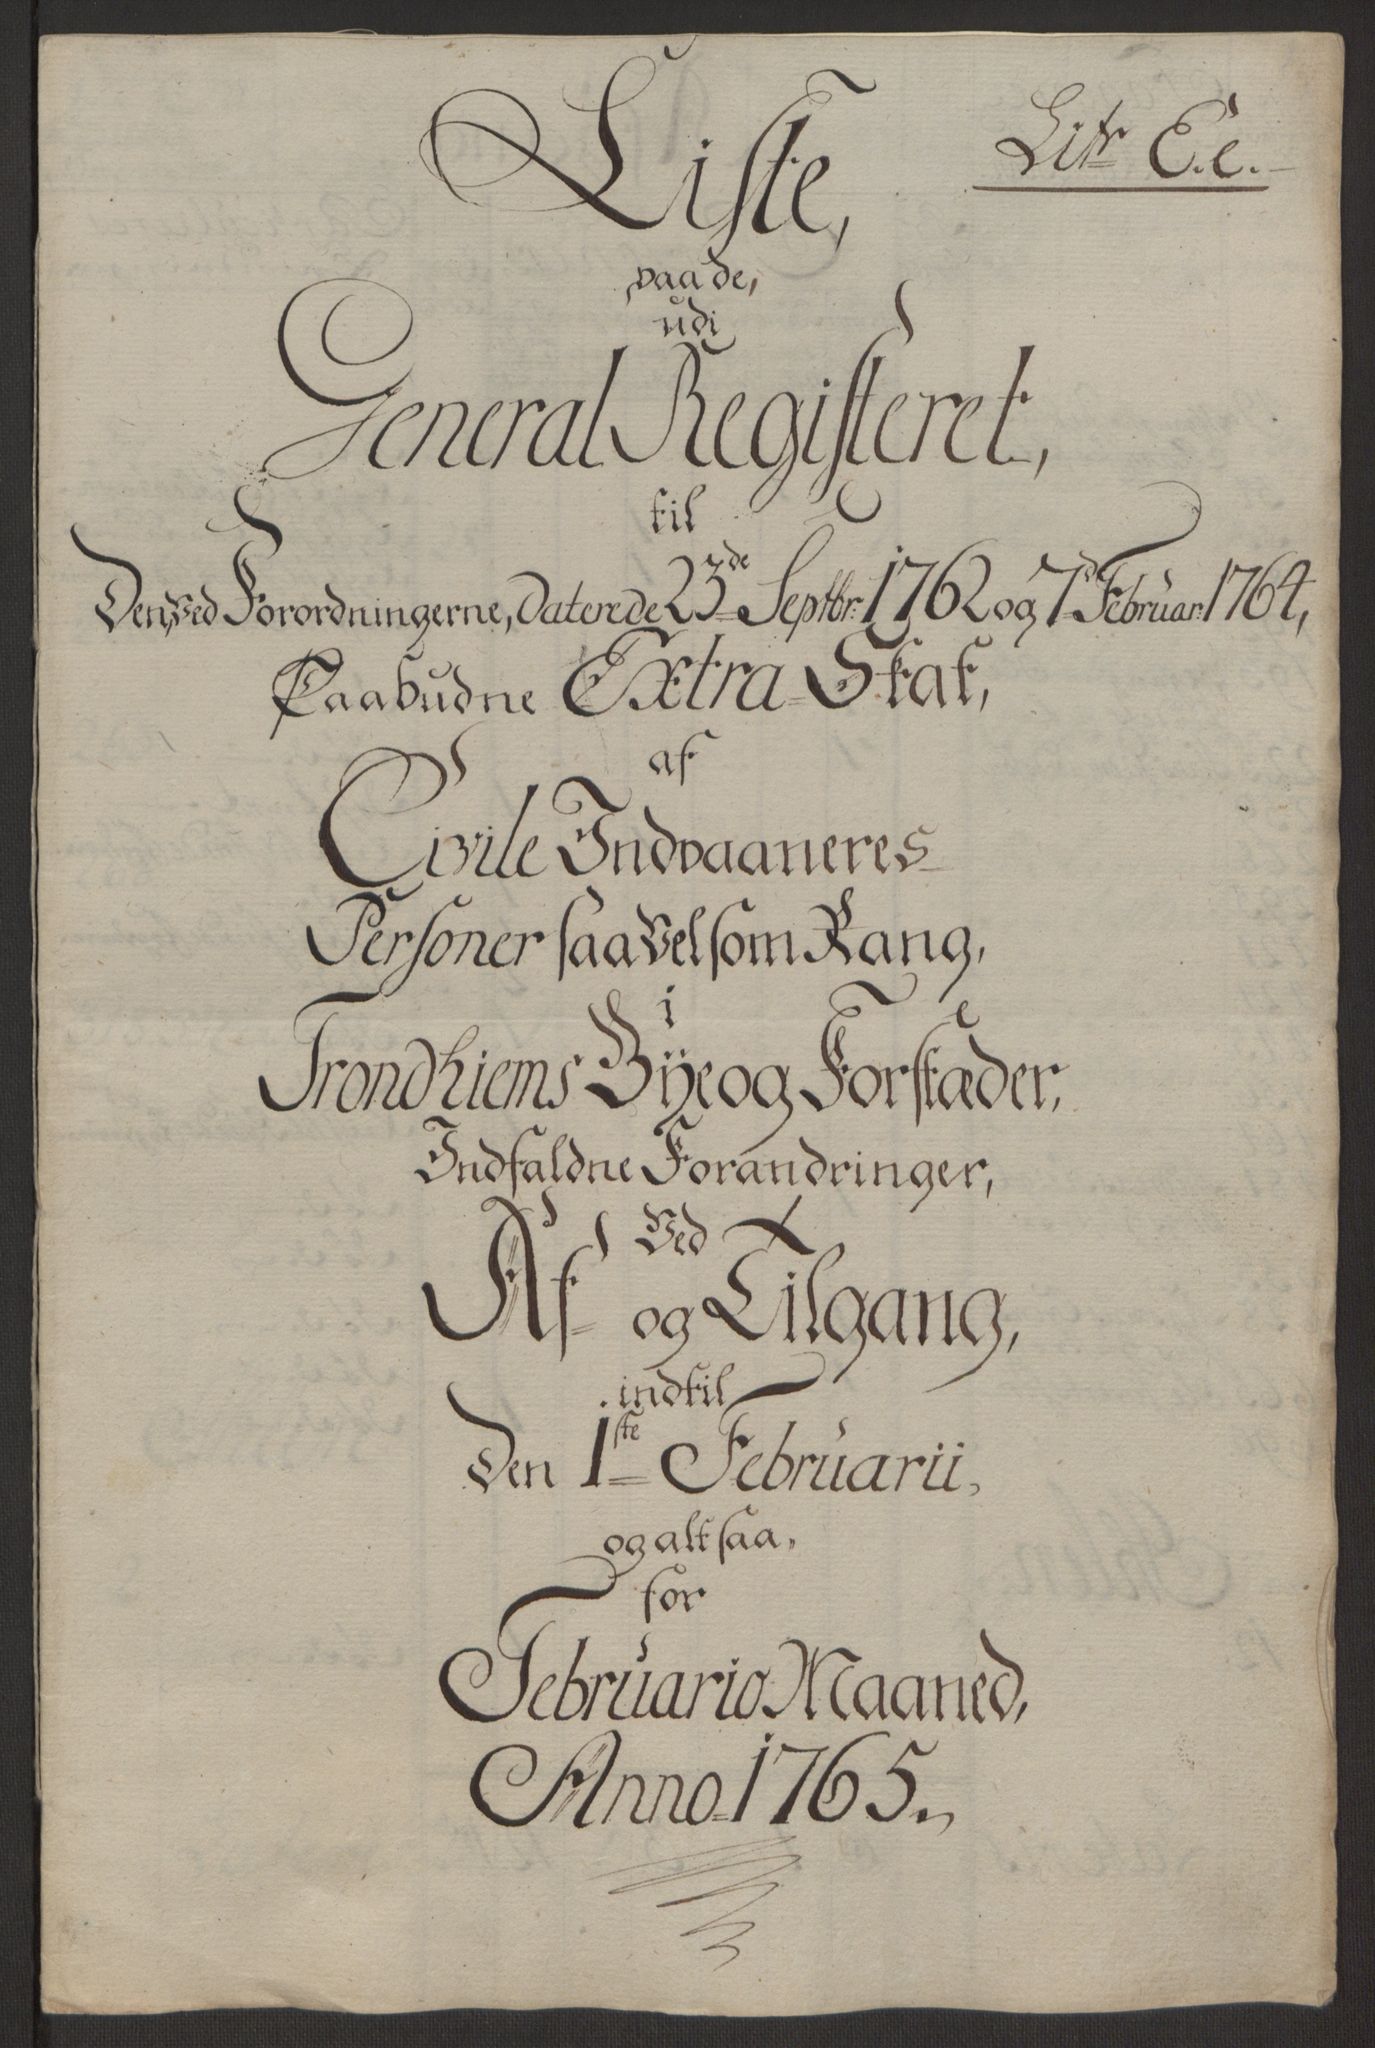 Litr E.e.
Liste,
paa de,
udi
General Registeret,
til
Den, ved Forordningerne, Daterede 23de Septbr: 1762 og 7d Februar: 1764,
Paabudne Extra-Skat,
af
Civile Indvaaneres
Personer saavelsom Rang,
i
Trondhiems Bÿe og Forstæder,
Indfaldne Forandringer,
Ved
Af- og Tilgang,
indtil
Den 1ste Februarii,
og altsaa,
for
Februario Maaned,
Anno 1765.